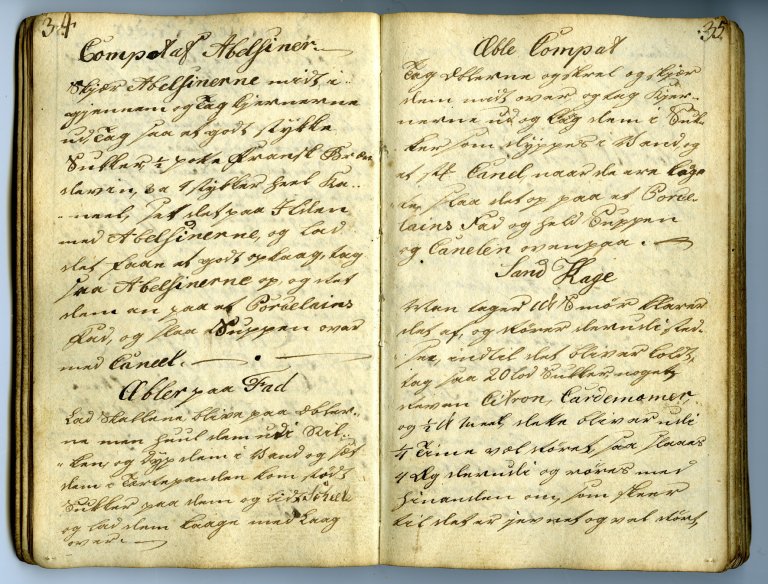 34.
Compot af Abelsiner.
Skjær Abelsinerne midt i-
gjennem og Tag kjernerne
ud Tag saa et godt stykke
Sukker, ½ pote Fransk Bræn
deviin, 3 a 4 stykker heel Ka-
neel, sæt det paa Ilden
med Abelsinerne, og lad
det faae et godt opkaag, tag
saa Abelsinerne op, og læt
dem an paa et Porcelains
Fad, og slaa Suppen over
med Caneel.
Æbler paa Fad
Lad Skallene blive paa Æbler-
ne men huul dem ud i Stil-
ken, og dyp dem i Vand og sæt
dem i Tartepanden kom stødt
Sukker paa dem og lidt
og lad dem kaage med Laag
over.
35.
Æble Compot
Tag Æblerne og skræl og skjær
dem midt over og tag Kjer-
nerne ud og læg dem i Suk-
ker som dyppes i Vand og
et st. Canel naar de ere kaag-
te, slaa det op paa et Porce-
lains Fad og held Suppen
og Canelen oven paa.
Sand Kage
Man tager smør klarer
det af, og rører derudi sted-
se, indtil det bliver koldt,
tag saa 20 lod Sukker noget
reven Citron, Cardemomer
og ½ ℔ meel, dette bliver udi
¼ Time vel rørt, saa slaaes
4 Æg derudi og røres med
hinanden om, som skeer
til det er jevnet og vel rørt,